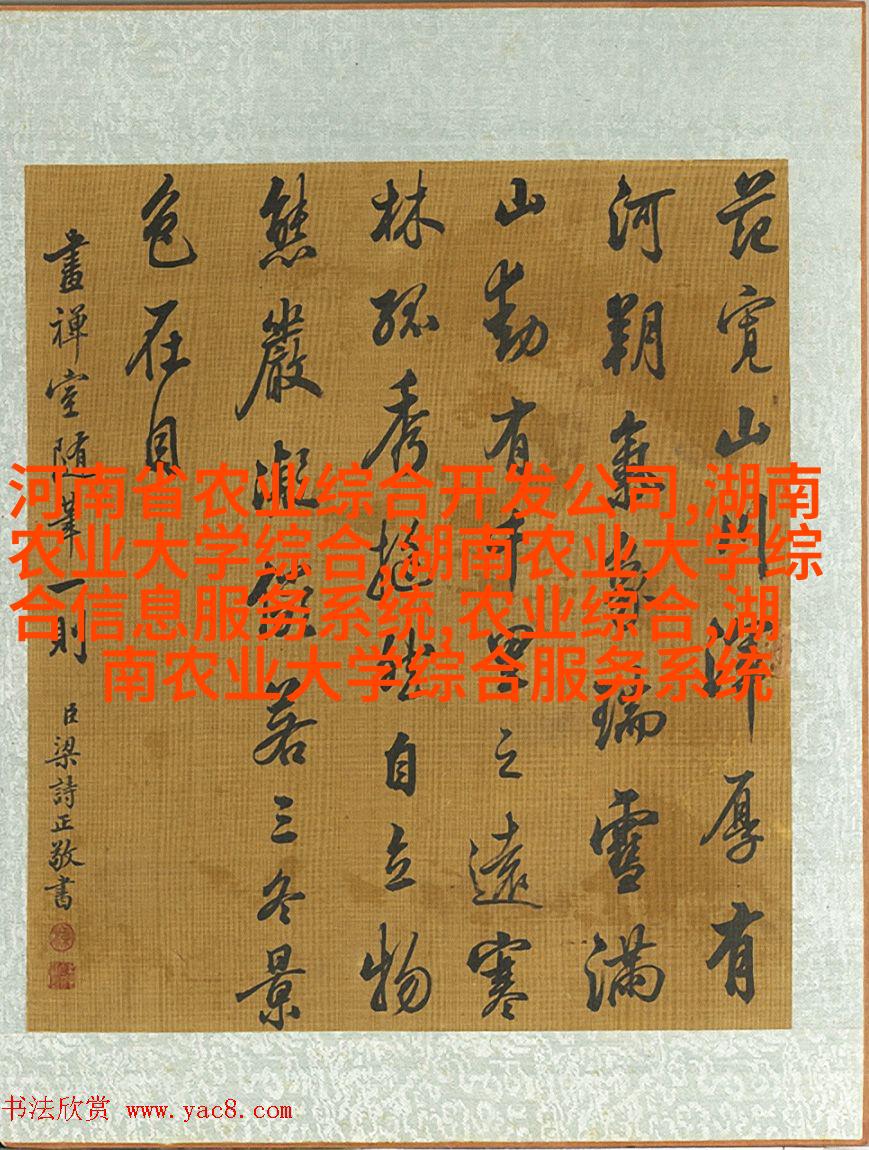 范寬山川渾厚有
河朔氣象瑞雪滿
山動有千里之遠寒
林孤秀挺然自立物
態嚴凝儼若三冬景
色在目
畫禪室随筆一則
臣梁詩正敬書
河南省农业综合开发公司,湖南
农业大学综合,湖南农业大学综
合信息服务系统,农业综合,湖
南农业大学综合服务系统
书法欣赏 www.yac8.com